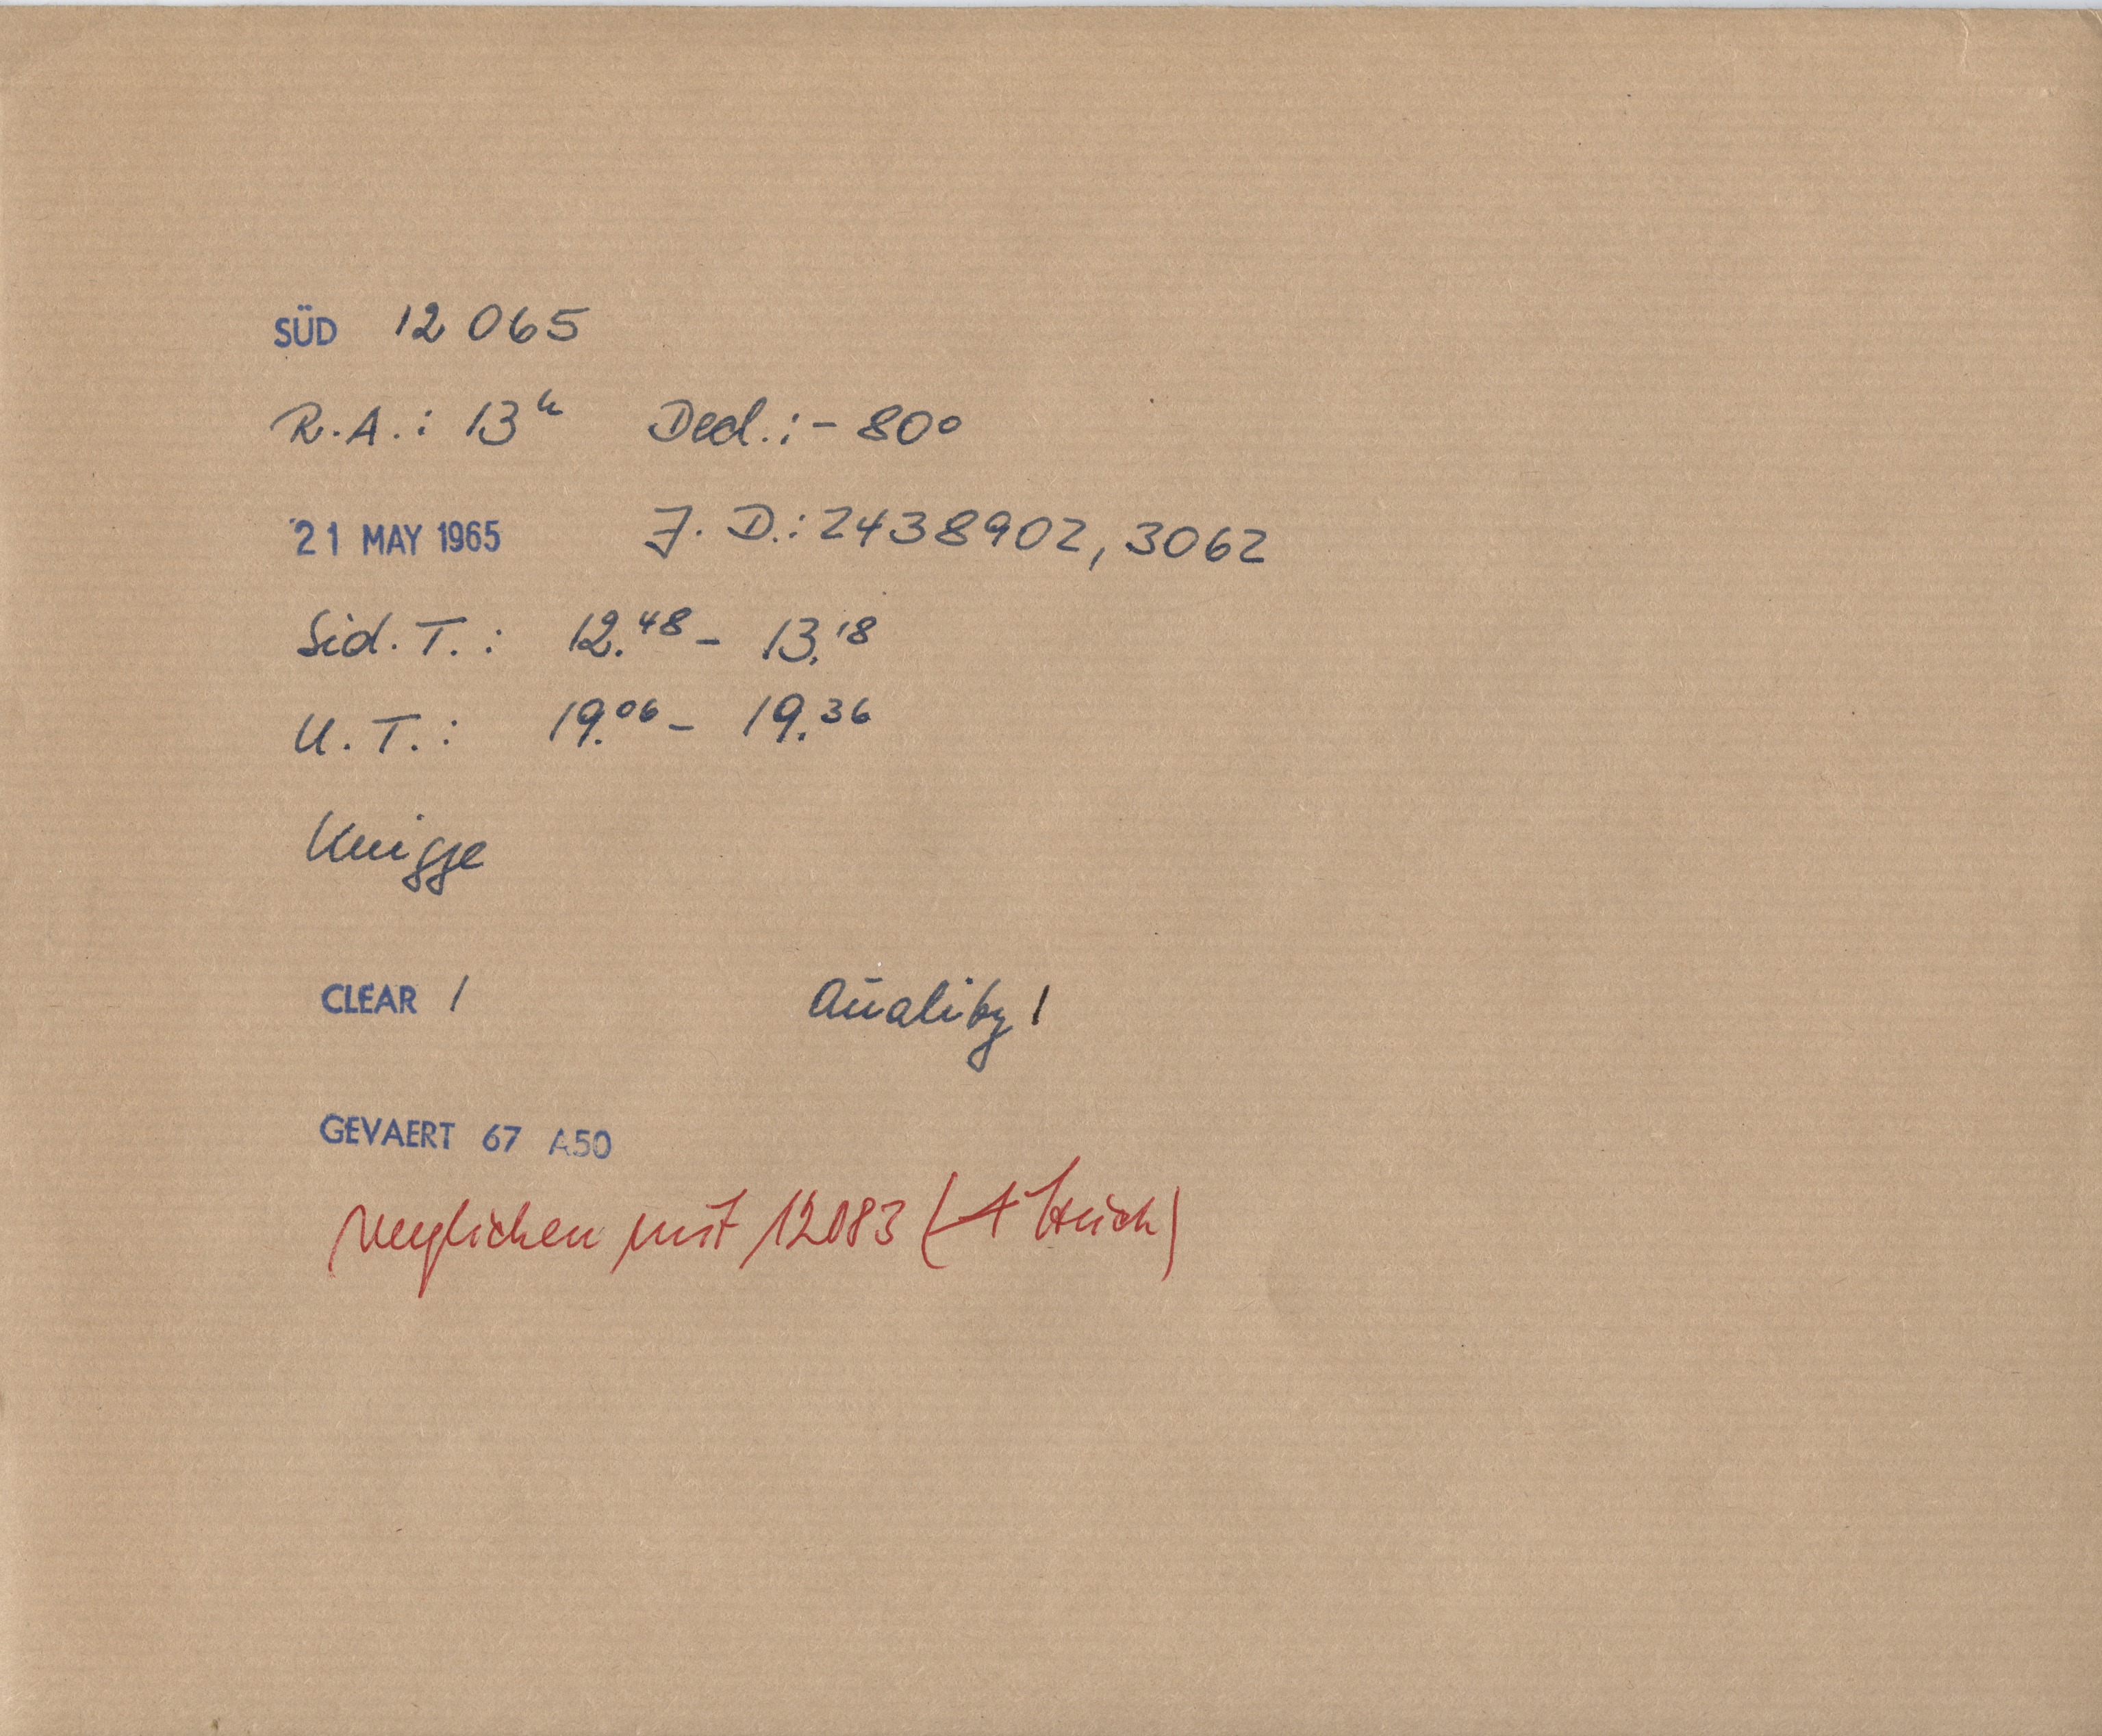 SÜD 12 065
R.A.: 13ʰ Decl.: - 80°
21 MAY 1965 J. D.: 2438902, 3062
Sid. T. : 12.⁴⁸ - 13.¹⁸
U. T. : 19.⁰⁶ - 19.³⁶
Knigge
CLEAR 1 Quality 1
GEVAERT 67 A50
verglichen mit 12083 (